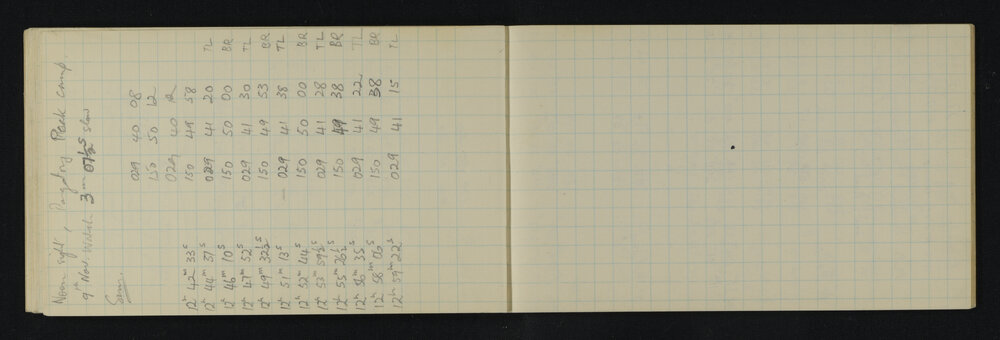 Noon sight, Rock camp
9th Nov. Watch 3m 07½s slow
Sun
029 40 08
150 50 12
029 40
12h 42m 33s 150 49 58
12h 44m 37s 029 41 20 TL
12h 46m 10s 150 50 00 BR
12h 47m 52s 029 41 30 TL
12h 49m 32½s 150 49 53 BR
12h 51m 13s 029 41 38 TL
12h 52m 44s 150 50 00 BR
12h 53m 59½s 029 41 28 TL
12h 55m 26½s 150 49 38 BR
12h 56m 35s 029 41 22 TL
12h 58m 06s 150 49 38 BR
12h 59m 22s 029 41 15 TL